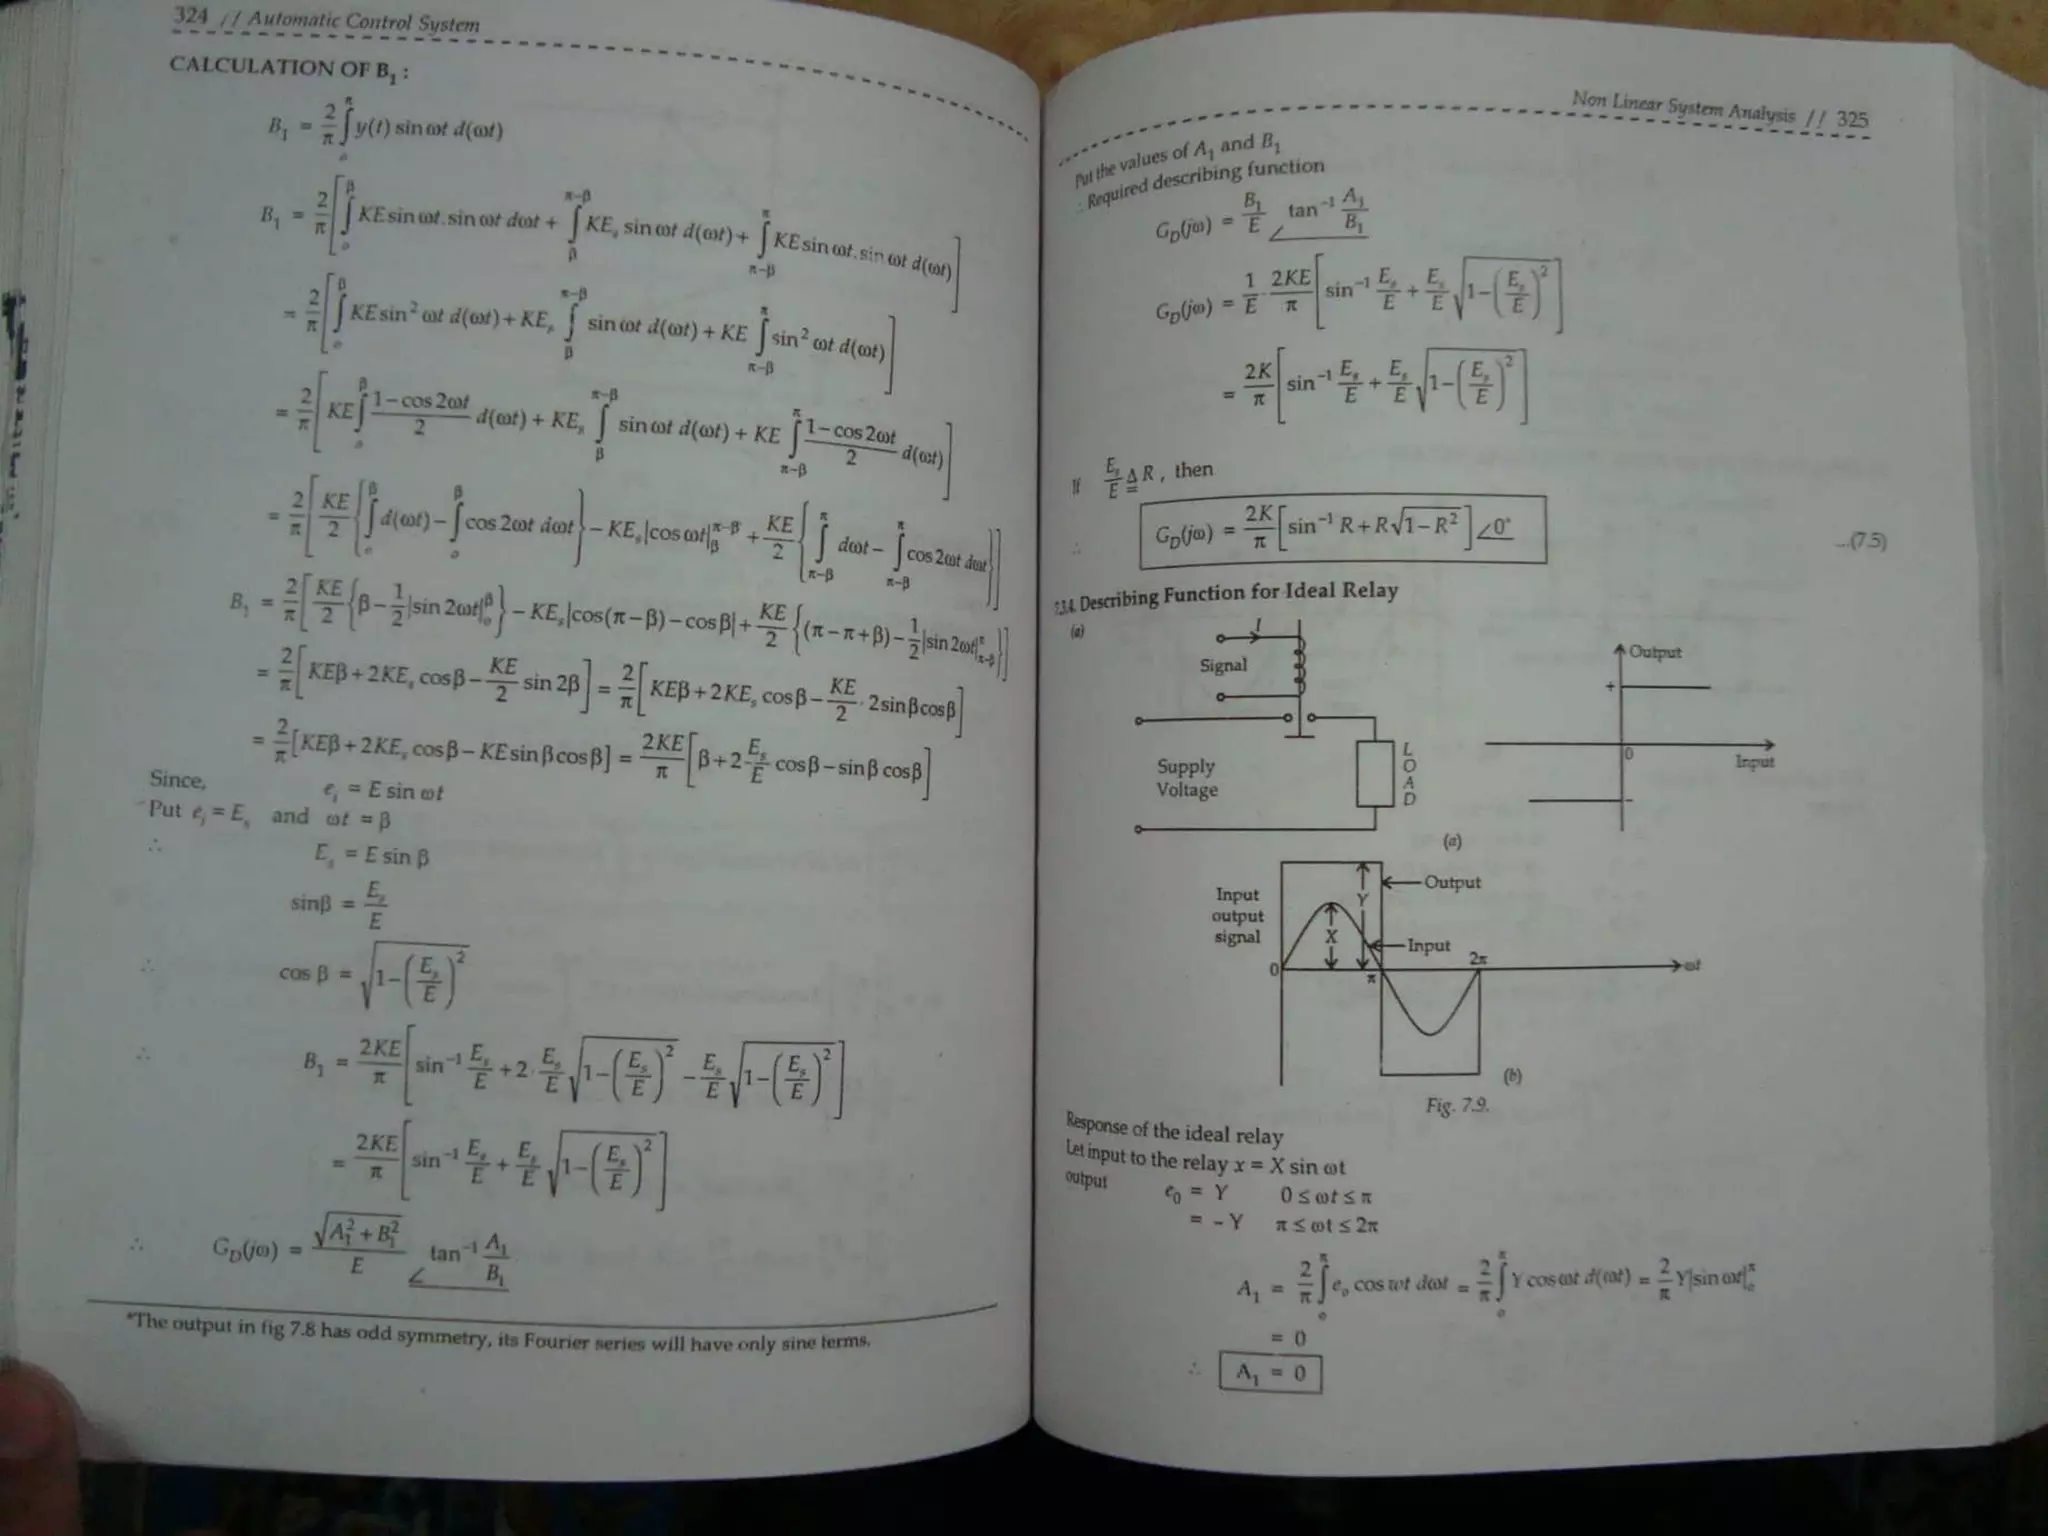 324 // Automatic Control System
CALCULATION OF B₁ :
B₁ = 2/π ∫₀^π y(t) sin ωt d(ωt)
B₁ = 2/π [ ∫₀^β KE sin ωt . sin ωt dωt + ∫_β^(π–β) KEₛ sin ωt d(ωt) + ∫_(π–β)^π KE sin ωt . sin ωt d(ωt) ]
= 2/π [ ∫₀^β KE sin² ωt d(ωt) + KEₛ ∫_β^(π–β) sin ωt d(ωt) + KE ∫_(π–β)^π sin² ωt d(ωt) ]
= 2/π [ KE ∫₀^β (1 – cos 2ωt)/2 d(ωt) + KEₛ ∫_β^(π–β) sin ωt d(ωt) + KE ∫_(π–β)^π (1 – cos 2ωt)/2 d(ωt) ]
= 2/π [ KE/2 { ∫₀^β d(ωt) – ∫₀^β cos 2ωt dωt } – KEₛ |cos ωt|_β^(π–β) + KE/2 { ∫_(π–β)^π dωt – ∫_(π–β)^π cos 2ωt dωt } ]
B₁ = 2/π [ KE/2 { β – 1/2 |sin 2ωt|₀^β } – KEₛ |cos(π – β) – cos β| + KE/2 { (π – π + β) – 1/2 |sin 2ωt|_(π–β)^π } ]
= 2/π [ KEβ + 2KEₛ cos β – KE/2 sin 2β ] = 2/π [ KEβ + 2KEₛ cos β – KE/2 · 2 sin β cos β ]
= 2/π [KEβ + 2KEₛ cos β – KE sin β cos β] = 2KE/π [ β + 2 · Eₛ/E cos β – sin β cos β ]
Since, eᵢ = E sin ωt
Put eᵢ = Eₛ and ωt = β
∴ Eₛ = E sin β
sin β = Eₛ/E
∴ cos β = √(1 – (Eₛ/E)²)
∴ B₁ = 2KE/π [ sin⁻¹ Eₛ/E + 2 · Eₛ/E √(1 – (Eₛ/E)²) – Eₛ/E √(1 – (Eₛ/E)²) ]
= 2KE/π [ sin⁻¹ Eₛ/E + Eₛ/E √(1 – (Eₛ/E)²) ]
∴ G_D(jω) = √(A₁² + B₁²)/E ∠ tan⁻¹ A₁/B₁
*The output in fig 7.8 has odd symmetry, its Fourier series will have only sine terms.
Non Linear System Analysis // 325
Put the values of A₁ and B₁
∴ Required describing function
G_D(jω) = B₁/E ∠ tan⁻¹ A₁/B₁
G_D(jω) = 1/E · 2KE/π [ sin⁻¹ Eₛ/E + Eₛ/E √(1 – (Eₛ/E)²) ]
= 2K/π [ sin⁻¹ Eₛ/E + Eₛ/E √(1 – (Eₛ/E)²) ]
If Eₛ/E ≜ R , then
∴ G_D(jω) = 2K/π [ sin⁻¹ R + R √(1 – R²) ] ∠0° ...(7.5)
7.3.4. Describing Function for Ideal Relay
(a)
I
Signal
Supply
Voltage
LOAD
Output
+
0
Input
–
(a)
Input
output
signal
Output
Y
X
Input
0
π
2π
ωt
(b)
Fig. 7.9.
Response of the ideal relay
Let input to the relay x = X sin ωt
output e₀ = Y 0 ≤ ωt ≤ π
= – Y π ≤ ωt ≤ 2π
A₁ = 2/π ∫₀^π eₒ cos wt dωt = 2/π ∫₀^π Y cos ωt d(ωt) = 2/π Y|sin ωt|₀^π
= 0
∴ A₁ = 0